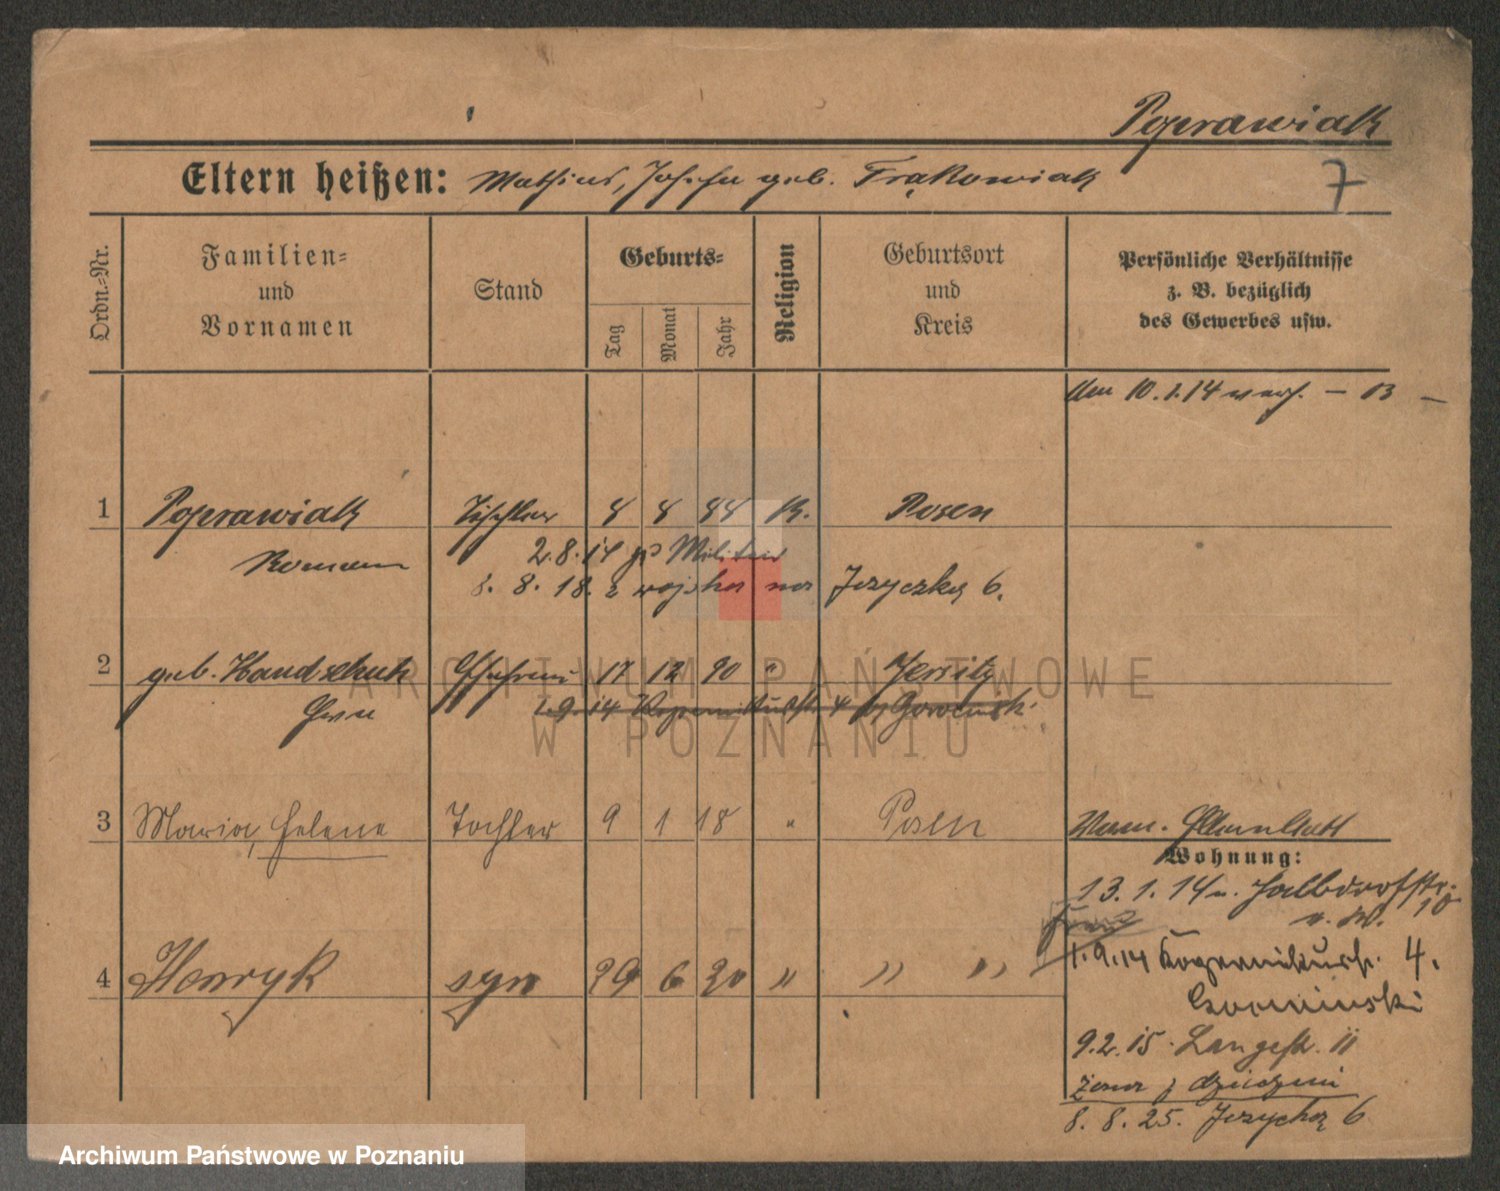 Poprawiak
7
Eltern heißen: Mathias, Josefa geb. Frąkowiak
Ordn.-Nr.
Familien-
und
Vornamen
Stand
Geburts-
Tag
Monat
Jahr
Religion
Geburtsort
und
Kreis
Persönliche Verhältnisse
z. B. bezüglich
des Gewerbes usw.
Am 10.1.14 verh. - B -
1 Poprawiak Tischler 8 8 84 K. Posen
Roman
2.8.14 zu Militär
8.8.18. z wojska na Jerzycką 6.
2 geb. Handschuh Ehefrau 17 12 90 " Jersitz
Ewa
1.9.14 Kopernikusstr. 4 Gorminski
3 Maria, Helene Tochter 9 1 18 " Posen
4 Henryk syn 29 6 20 " " "
Wohnung:
13.1.14 Halbdorfstr. 10
Frau
1.9.14 Kopernikusstr. 4.
Gorminski
9.2.15. Langestr. 11
żona z dziećmi
8.8.25. Jerzycka 6
ARCHIWUM PAŃSTWOWE
W POZNANIU
Archiwum Państwowe w Poznaniu